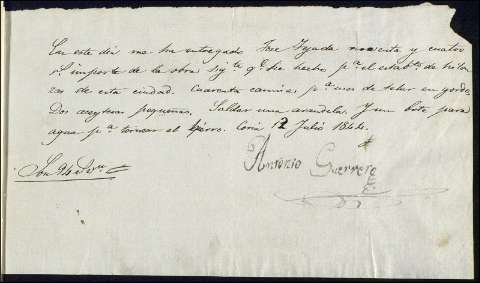 En este dia me ha entregado Jose Tejada noventa y cuatro
rs. importe de la obra sigte qe he hecho pa el establo de hilan
zas de esta ciudad. Cuarenta pa usos de telar en gordo,
Dos aceyteras pequeñas. Soldar una arandela. Y un bote para
agua pa tornear el fierro. Coria 12 Julio 1844.
Antonio Guerrero
Son 94 rs. vn